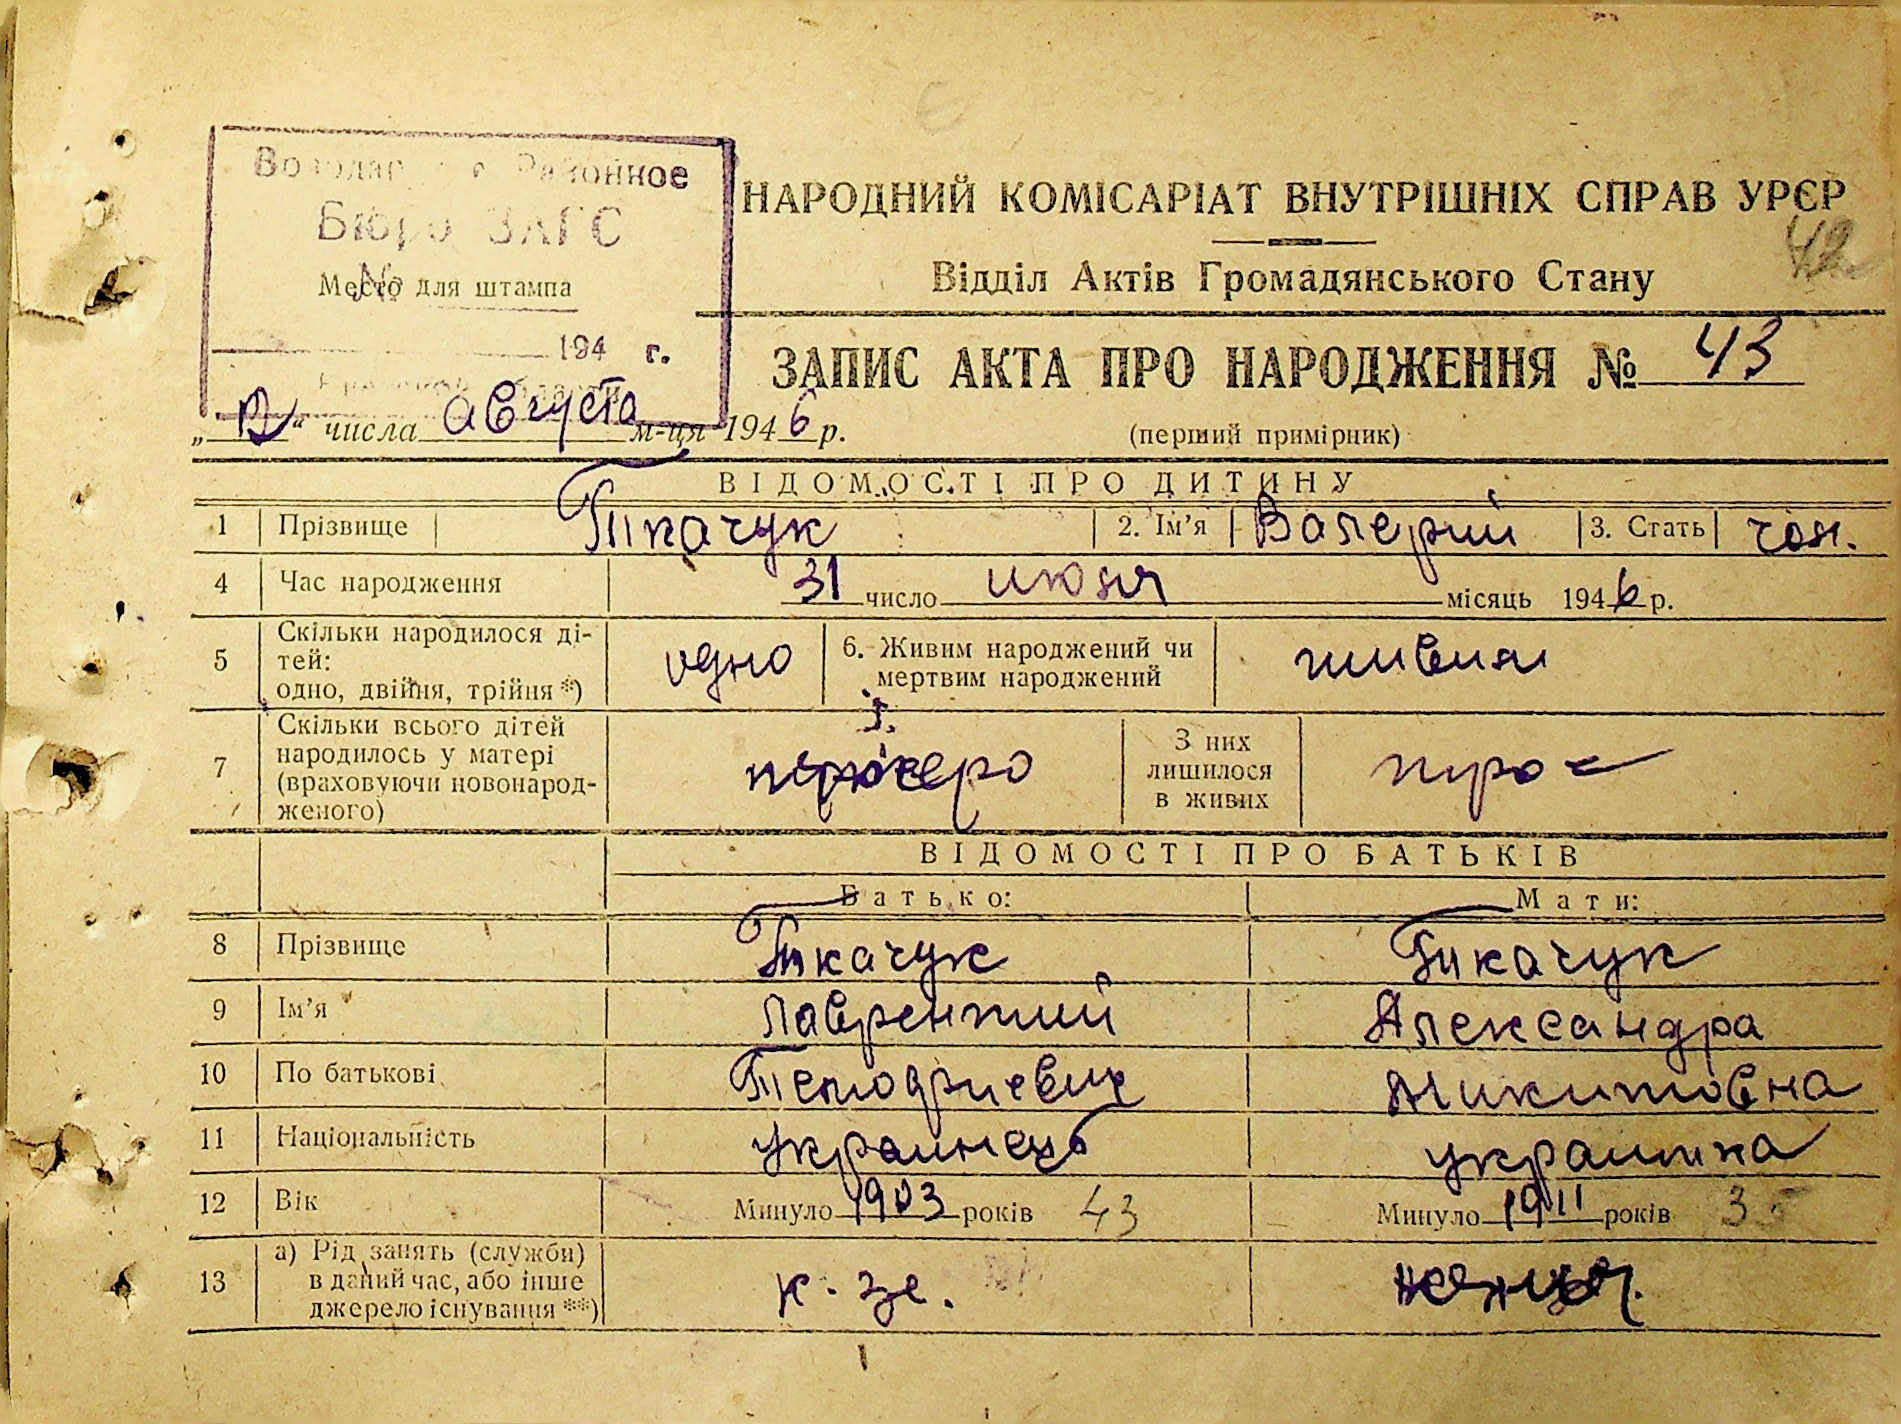 Районное
Бюро ЗАГС
Место для штампа
№
194 г.
НАРОДНИЙ КОМІСАРІАТ ВНУТРІШНІХ СПРАВ УРЄР
42
Відділ Актів Громадянського Стану
ЗАПИС АКТА ПРО НАРОДЖЕННЯ № 43
„12“ числа августа м-ця 1946 р.
(перший примірник)
ВІДОМОСТІ ПРО ДИТИНУ
1 Прізвище Ткачук 2. Ім’я Валерий 3. Стать чол.
4 Час народження 31 число июля місяць 1946 р.
5 Скільки народилося ді-
тей:
одно, двійня, трійня *)
одно
6. Живим народжений чи
мертвим народжений
живым
7 Скільки всього дітей
народилось у матері
(враховуючи новонарод-
женого)
З них
лишилося
в живих
трое
ВІДОМОСТІ ПРО БАТЬКІВ
Батько: Мати:
8 Прізвище Ткачук Ткачук
9 Ім’я Лаврентий Александра
10 По батькові Микитовна
11 Національність украинець украинка
12 Вік Минуло 1903 років 43 Минуло 1911 років 35
13 а) Рід занять (служби)
в даний час, або інше
джерело існування **)